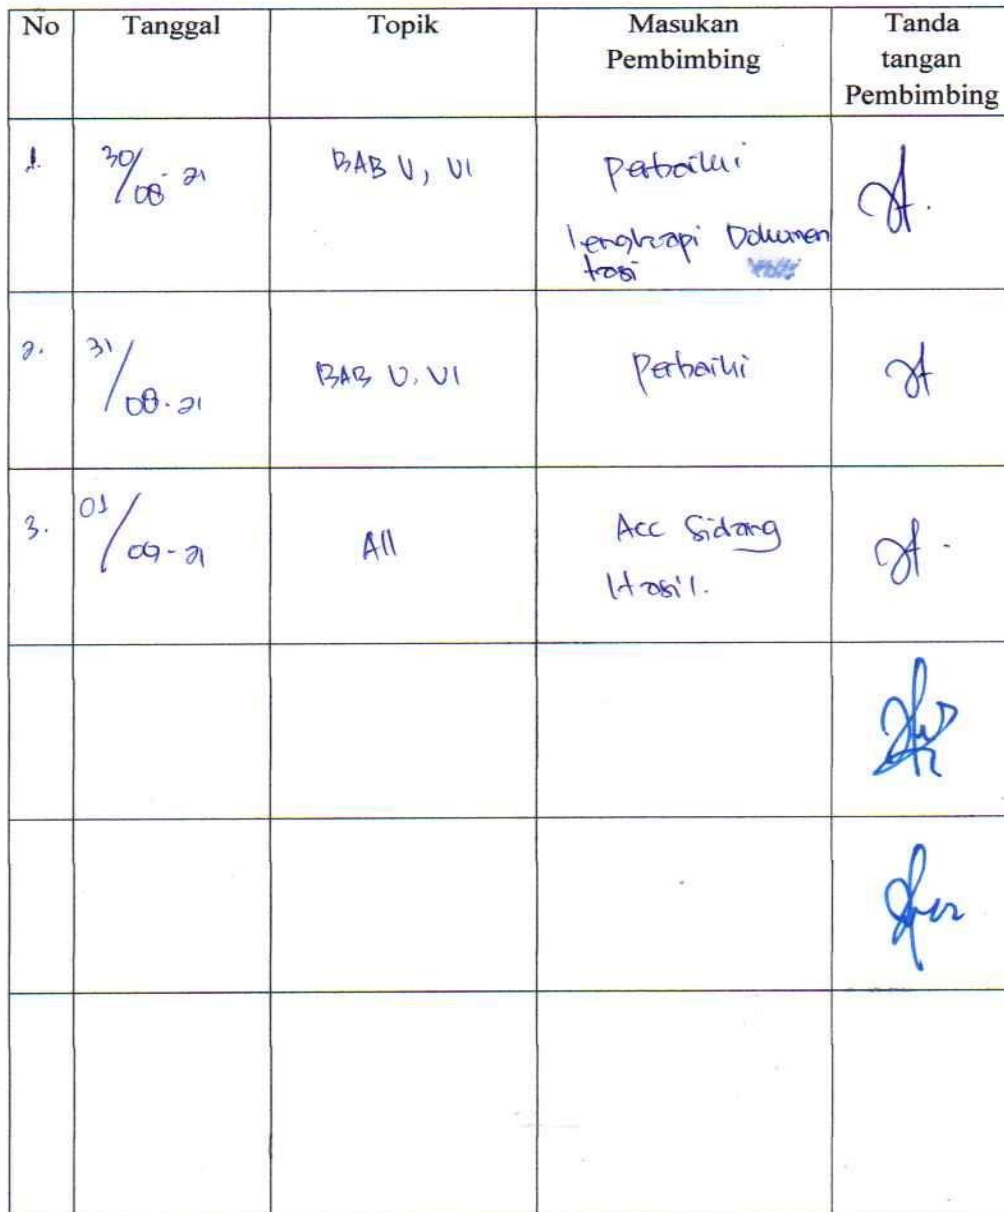 No Tanggal Topik Masukan Pembimbing Tanda tangan Pembimbing
1. 30/08-21 BAB V, VI Perbaiki
lengkapi Dokumen
tasi
2. 31/08-21 BAB V, VI Perbaiki
3. 01/09-21 All Acc Sidang
Hasil.